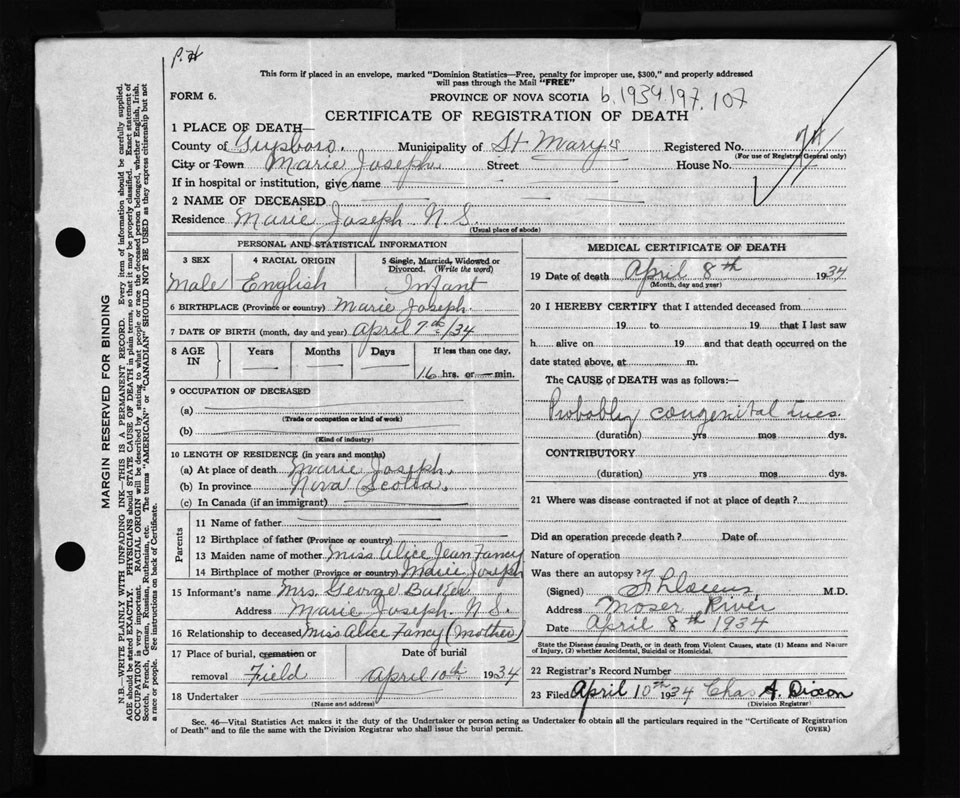 This form if placed in an envelope, marked "Dominion Statistics—Free, penalty for improper use, $300," and properly addressed
will pass through the Mail "FREE"
FORM 6.
PROVINCE OF NOVA SCOTIA b.1934.197.107
CERTIFICATE OF REGISTRATION OF DEATH
1 PLACE OF DEATH—
County of Guysboro. Municipality of St Marys Registered No.
(For use of Registrar General only)
City or Town Marie Joseph Street House No.
If in hospital or institution, give name
2 NAME OF DECEASED
Residence Marie Joseph N.S.
(Usual place of abode)
PERSONAL AND STATISTICAL INFORMATION
3 SEX 4 RACIAL ORIGIN 5 Single, Married, Widowed or
Divorced. (Write the word)
Male English Infant
6 BIRTHPLACE (Province or country) Marie Joseph.
7 DATE OF BIRTH (month, day and year) April 7th/34
8 AGE IN Years Months Days If less than one day,
16 hrs. or min.
9 OCCUPATION OF DECEASED
(a)
(Trade or occupation or kind of work)
(b)
(Kind of industry)
10 LENGTH OF RESIDENCE (in years and months)
(a) At place of death Marie Joseph.
(b) In province Nova Scotia.
(c) In Canada (if an immigrant)
Parents
11 Name of father
12 Birthplace of father (Province or country)
13 Maiden name of mother Miss Alice Jean Fancy
14 Birthplace of mother (Province or country) Marie Joseph
15 Informant's name Mrs. George Baker
Address Marie Joseph. N.S.
16 Relationship to deceased Miss Alice Fancy (Mother)
17 Place of burial, cremation or
removal Field
Date of burial
April 10th 1934
18 Undertaker
(Name and address)
MEDICAL CERTIFICATE OF DEATH
19 Date of death April 8th 1934
(Month, day and year)
20 I HEREBY CERTIFY that I attended deceased from
19 to 19 that I last saw
h alive on 19 and that death occurred on the
date stated above, at m.
The CAUSE of DEATH was as follows:—
Probably congenital lues
(duration) yrs mos dys.
CONTRIBUTORY
(duration) yrs mos dys.
21 Where was disease contracted if not at place of death?
Did an operation precede death? Date of
Nature of operation
Was there an autopsy?
(Signed) M.D.
Address Moser River
Date April 8th 1934
State the Disease causing Death, or in death from Violent Causes, state (1) Means and Nature
of Injury, (2) whether Accidental, Suicidal or Homicidal.
22 Registrar's Record Number
23 Filed April 10th 1934 Chas A. Dixon
(Division Registrar)
Sec. 46—Vital Statistics Act makes it the duty of the Undertaker or person acting as Undertaker to obtain all the particulars required in the "Certificate of Registration
of Death" and to file the same with the Division Registrar who shall issue the burial permit.
(OVER)
MARGIN RESERVED FOR BINDING
N.B.—WRITE PLAINLY WITH UNFADING INK—THIS IS A PERMANENT RECORD. Every item of information should be carefully supplied.
AGE should be stated EXACTLY. PHYSICIANS should STATE CAUSE OF DEATH in plain terms, so that it may be properly classified. Exact statement of
OCCUPATION is very important. RACIAL ORIGIN will be described by stating to what people or race the deceased person belonged, whether English, Irish,
Scotch, French, German, Russian, Ruthenian, etc. The terms "AMERICAN" or "CANADIAN" SHOULD NOT BE USED as they express citizenship but not
a race or people. See instructions on back of Certificate.